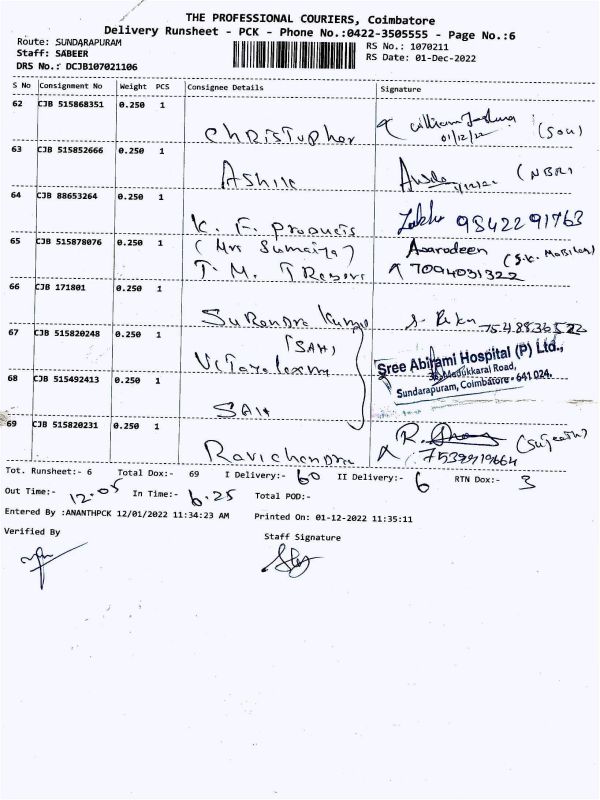 THE PROFESSIONAL COURIERS, Coimbatore
Delivery Runsheet - PCK - Phone No.:0422-3505555 - Page No.:6
Route: SUNDARAPURAM
RS No.: 1070211
Staff: SABEER
RS Date: 01-Dec-2022
DRS No.: DCJB107021106
S No Consignment No Weight PCS Consignee Details Signature
62 CJB 515868351 0.250 1
Christuphar 01/12/22 (Son)
63 CJB 515852666 0.250 1
Ashik (NBR)
64 CJB 88653264 0.250 1
K. F. Products 9842291763
65 CJB 515878076 0.250 1
(Mrs Sumaiya) Asarodeen
T. M. 7094031322
66 CJB 171801 0.250 1
Surendra Kumar
67 CJB 515820248 0.250 1
(SAH)
Sree Abirami Hospital (P) Ltd.,
Madukkarai Road,
Sundarapuram, Coimbatore - 641 024.
68 CJB 515492413 0.250 1
SAH
69 CJB 515820231 0.250 1
Ravichandra R. (Sujeeth)
7539919664
Tot. Runsheet:- 6 Total Dox:- 69 I Delivery:- 60 II Delivery:- 6 RTN Dox:- 3
Out Time:- 12.05 In Time:- 6.25 Total POD:-
Entered By :ANANTHPCK 12/01/2022 11:34:23 AM Printed On: 01-12-2022 11:35:11
Verified By
Staff Signature